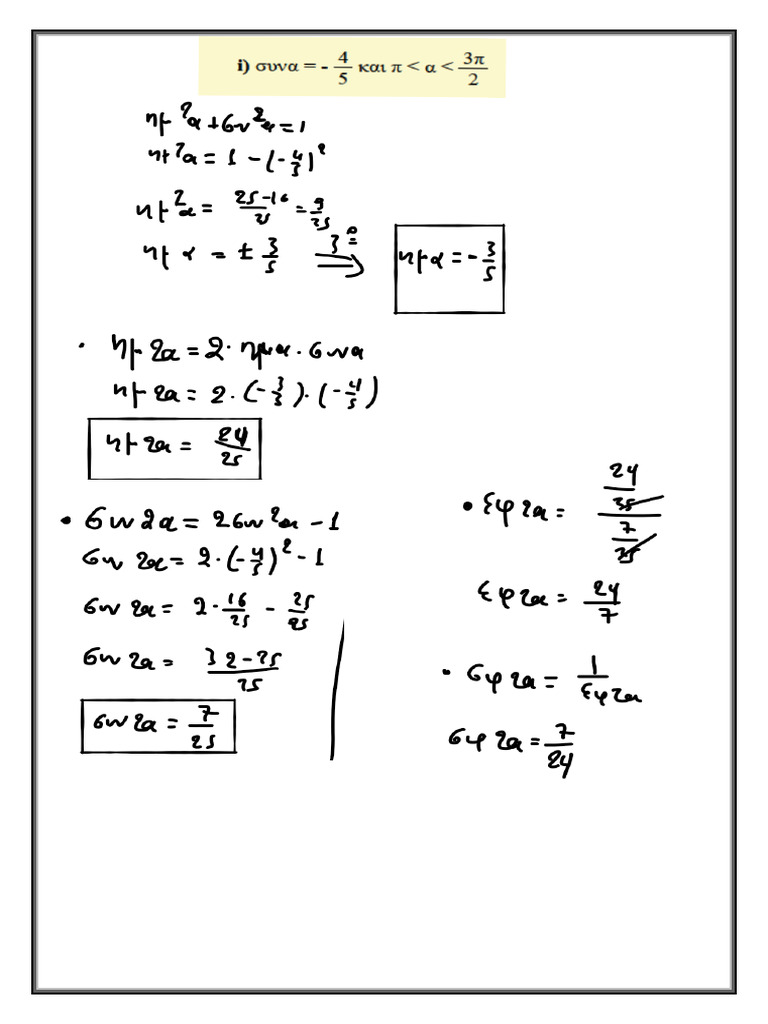 i) συνα = - 4/5 και π < α < 3π/2
ημ²α + συν²α = 1
ημ²α = 1 - (-4/5)²
ημ²α = 25-16/25 = 9/25
ημα = ± 3/5 3ο ⇒ ημα = - 3/5
• ημ2α = 2·ημα·συνα
ημ2α = 2·(-3/5)·(-4/5)
ημ2α = 24/25
• συν2α = 2συν²α - 1
συν2α = 2·(-4/5)² - 1
συν2α = 2·16/25 - 25/25
συν2α = 32-25/25
συν2α = 7/25
• εφ2α = 24/25 / 7/25
εφ2α = 24/7
• σφ2α = 1/εφ2α
σφ2α = 7/24